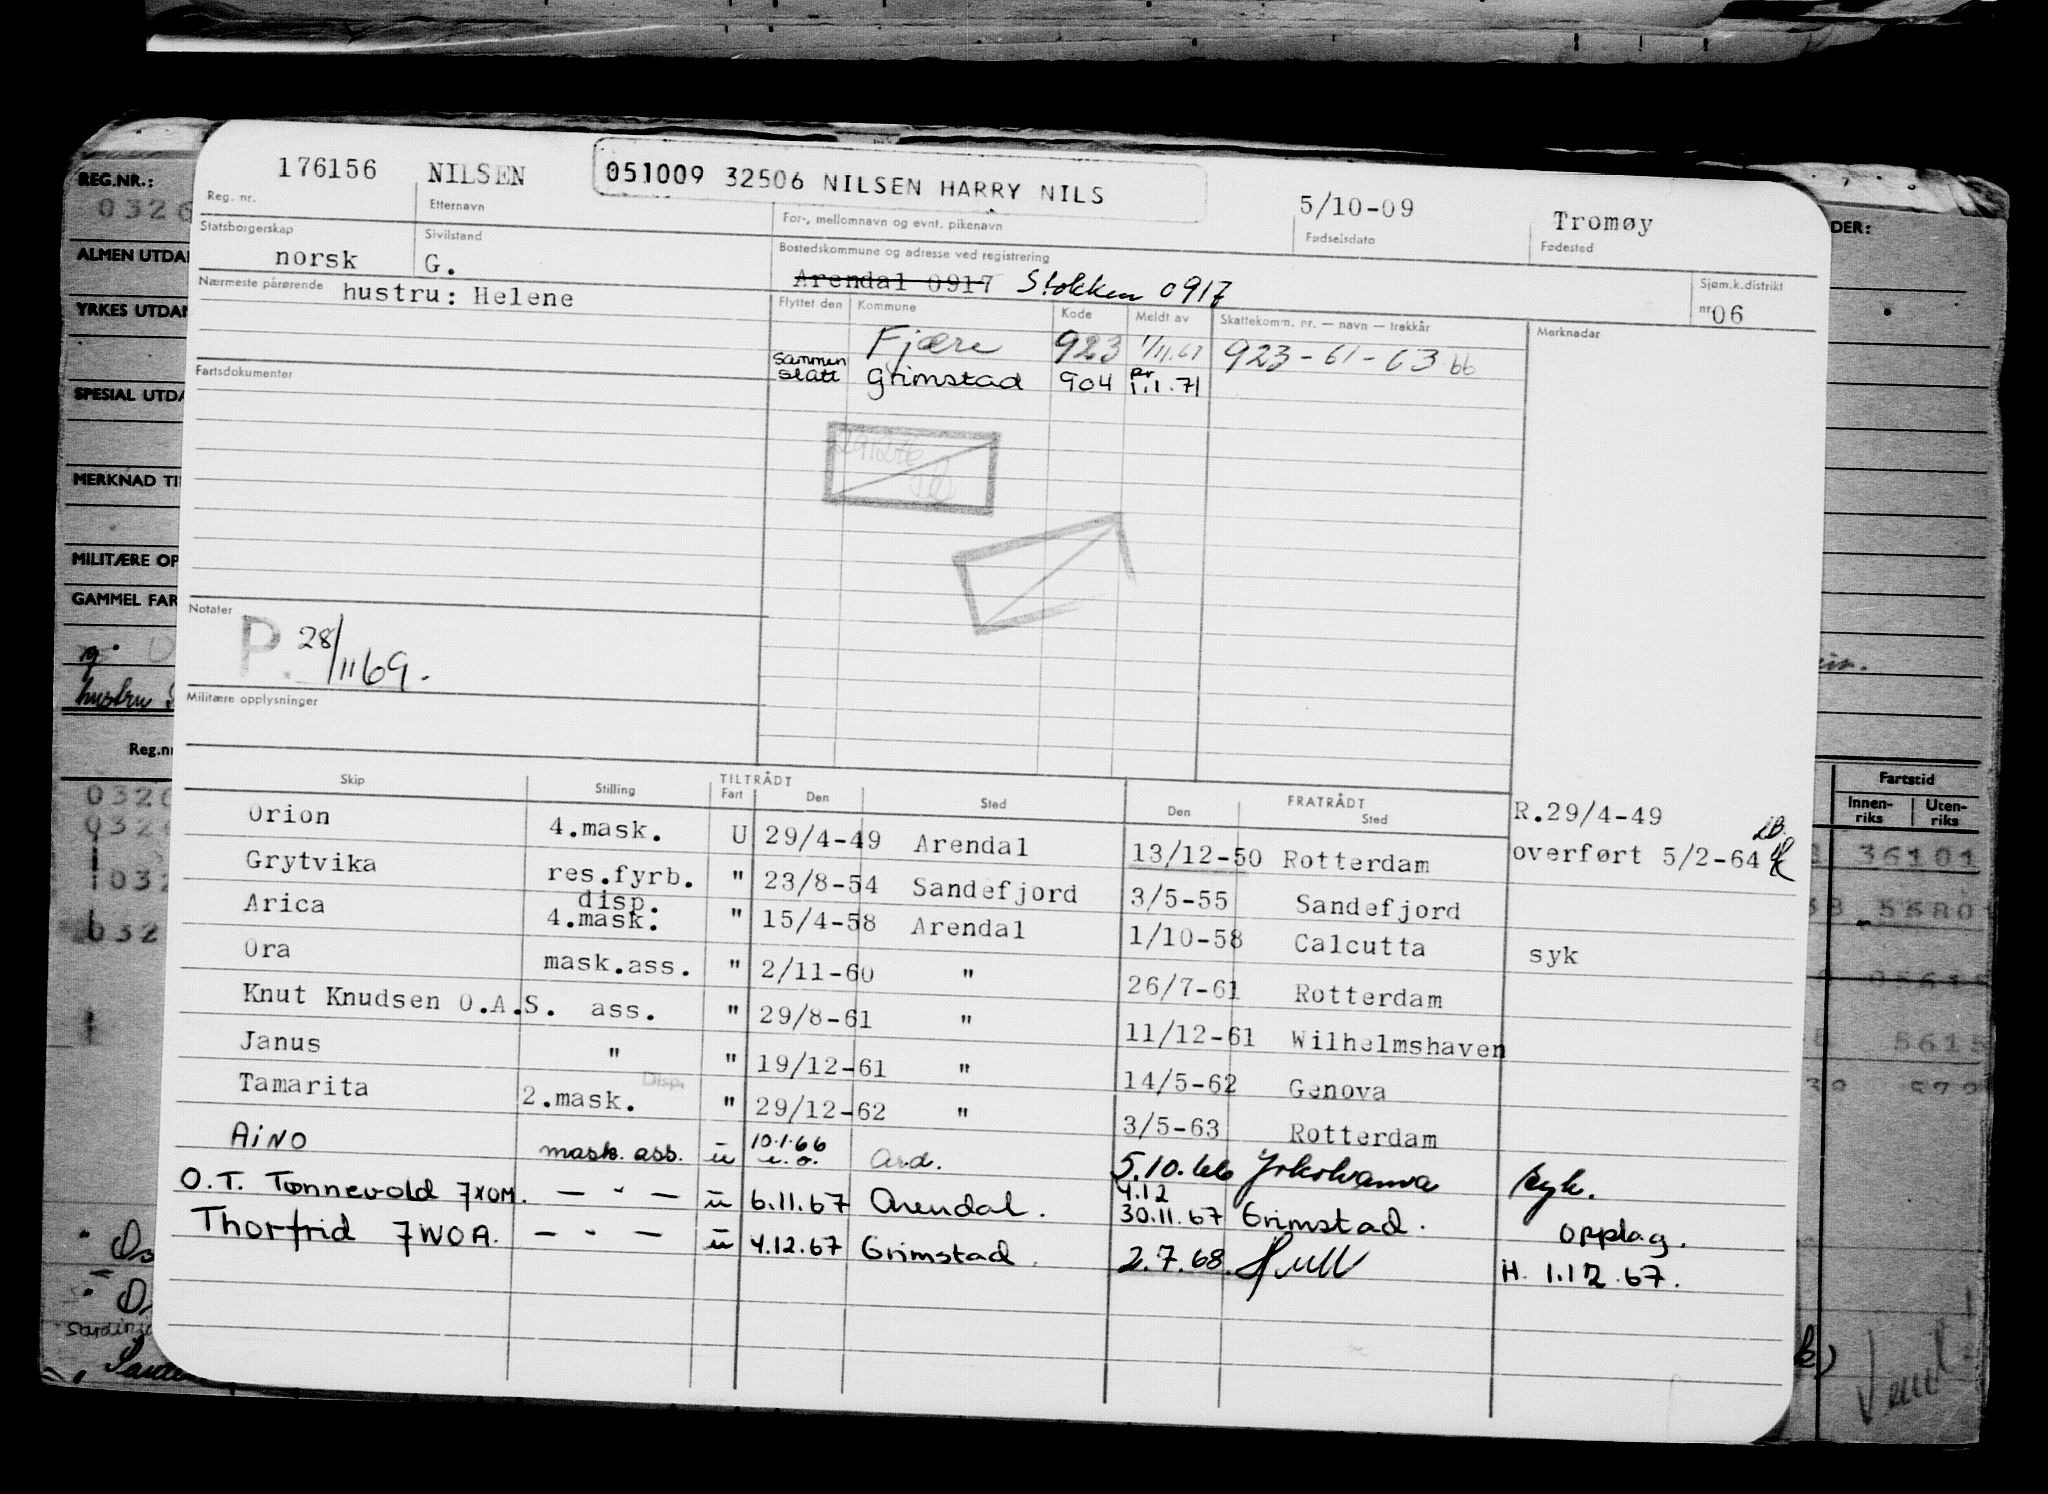 REG.NR.:
ALMEN UTDA
YRKES UTDA
SPESIAL UTDA
MERKNAD TI
MILITÆRE OP
GAMMEL FAR
hustru
Reg.nr
DER:
Fartstid
Innen-riks Uten-riks
36101
176156 NILSEN 051009 32506 NILSEN HARRY NILS 5/10-09 Tromøy
Reg. nr. Etternavn For-, mellomnavn og evnt. pikenavn Fødselsdato Fødested
Statsborgerskap Sivilstand Bostedskommune og adresse ved registrering
norsk G. Arendal 0917 Stokken 0917
Sjøm.k.distrikt
nr 06
Nærmeste pårørende hustru: Helene
Flyttet den Kommune Kode Meldt av Skattekomm. nr. — navn — trekkår Merknader
Fjære 923 1/11.61 923-61-63 bb
sammen slått Grimstad 904 pr 1.1.71
Fartsdokumenter
Notater
P. 28/11 69.
Militære opplysninger
Skip Stilling TILTRÅDT FRATRÅDT
Fart Den Sted Den Sted
Orion 4.mask. U 29/4-49 Arendal 13/12-50 Rotterdam R.29/4-49
Grytvika res.fyrb. " 23/8-54 Sandefjord 3/5-55 Sandefjord overført 5/2-64
Arica disp. 4.mask. " 15/4-58 Arendal 1/10-58 Calcutta syk
Ora mask.ass. " 2/11-60 " 26/7-61 Rotterdam
Knut Knudsen O.A.S. ass. " 29/8-61 " 11/12-61 Wilhelmshaven
Janus " " 19/12-61 " 14/5-62 Genova
Tamarita 2.mask. Disp. " 29/12-62 " 3/5-63 Rotterdam
AiNO mask. ass. u 10.1.66 u.o. Ard. 5.10.66 Yokohama syk.
O.T. Tønnevold 7XOM. — " — u 6.11.67 Arendal. 4.12 30.11.67 Grimstad. opplag.
Thorfrid 7WOA. — " — u 4.12.67 Grimstad. 2.7.68. Hull H. 1.12.67.